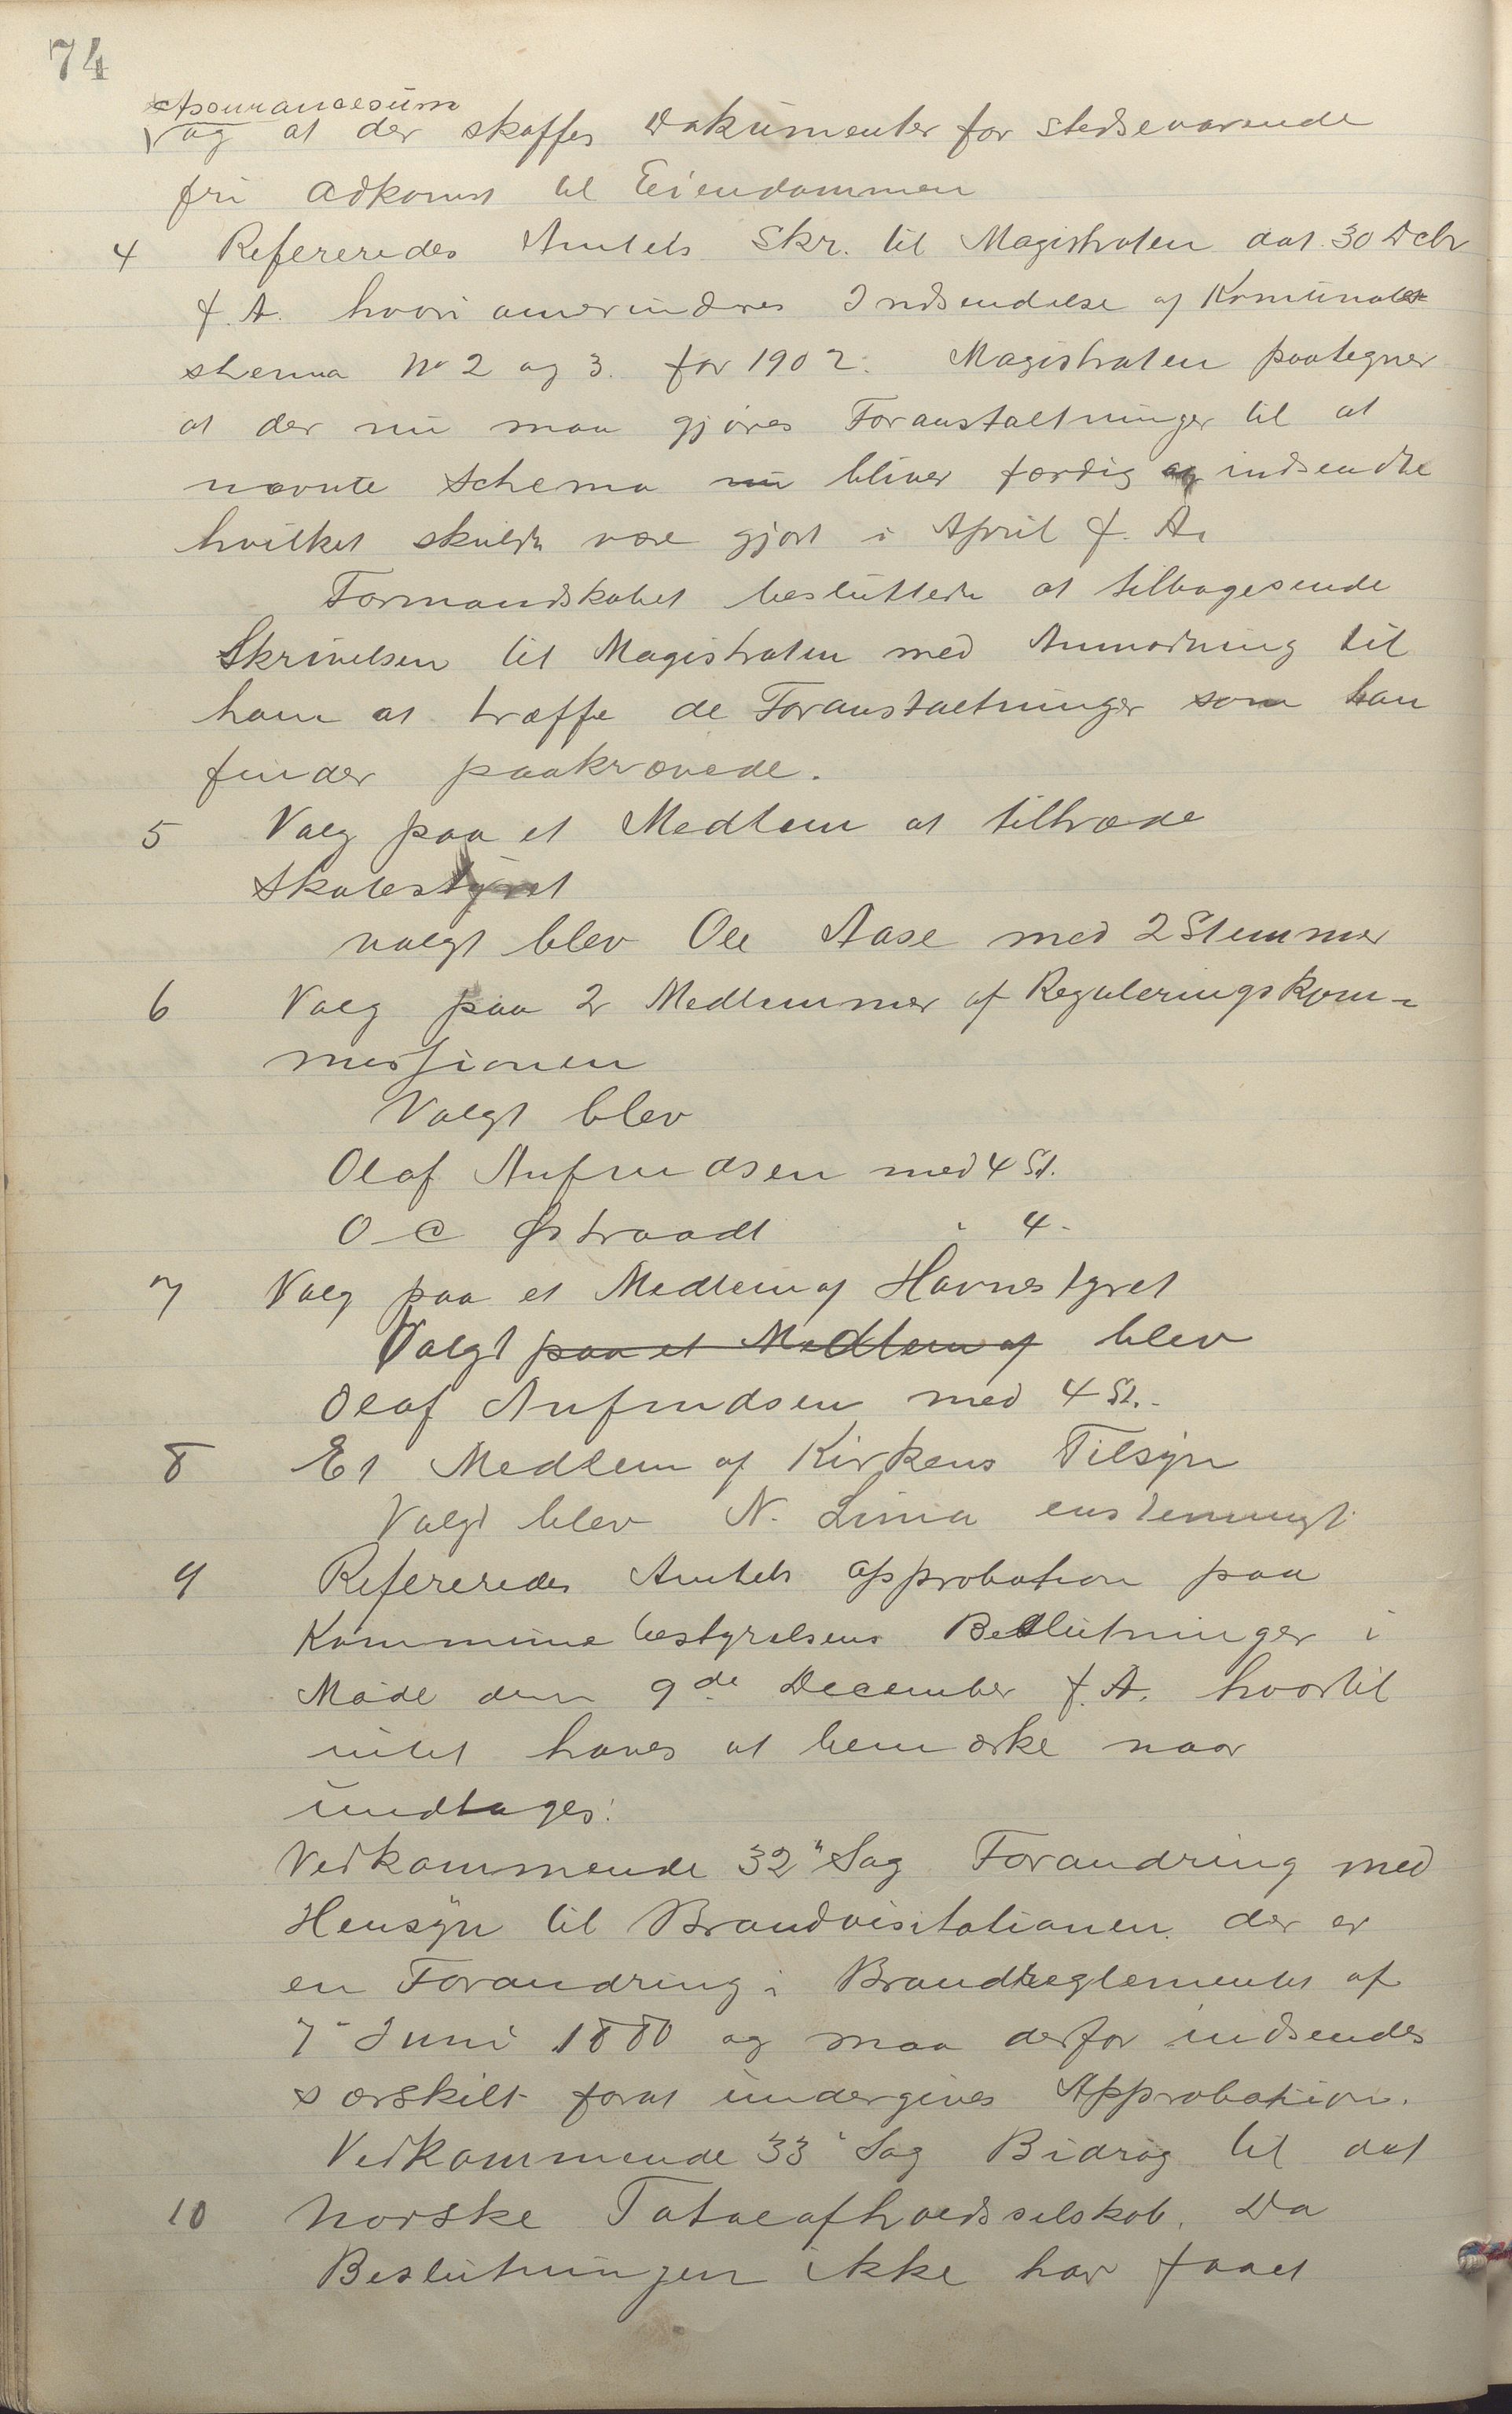 74
Assurancesum
og at der skaffes Dokumenter for stedsevarende
fri Adkomst til Eiendommen
4 Refereredes Amtets Skr. til Magistraten dat. 30 Dcbr
f. A. hvori anerindres Indsendelse af Komunale
skema No 2 og 3. for 1902. Magistraten paategner
at der nu maa gjøres Foranstaltninger til at
nævnte Schema nu bliver færdig og indsendte
hvilket skulde være gjort i April f. A.
Formandskabet besluttede at tilbagesende
Skrivelsen til Magistraten med Anmodning til
ham at træffe de Foranstaltninger som han
finder paakrævede.
5 Valg paa et Medlem at tiltræde
Skolestyret
valgt blev Ole Aase med 2 Stemmer
6 Valg paa 2 Medlemmer af Reguleringskom-
missionen
Valgt blev
Olaf Anfindsen med 4 St.
O C Østraadt " 4 -
7 Valg paa et Medlem af Havnestyret
Valgt paa et Medlem af blev
Olaf Anfindsen med 4 St.-
8 Et Medlem af Kirkens Tilsyn
Valgt blev N. Lima enstemmigt
9 Refereredes Amtets Approbation paa
Kommunebestyrelsens Beslutninger i
Møde den 9de December f. A. hvortil
intet haves at bemærke naar
undtages:
Vedkommende 32" Sag Forandring med
Hensyn til Brandvisitationen der er
en Forandring i Brandreglementet af
7" Juni 1880 og maa derfor indsendes
særskilt forat undergives Approbation.
Vedkommende 33" Sag Bidrag til det
10 norske Totalafholdsselskab. Da
Beslutningen ikke har faaet